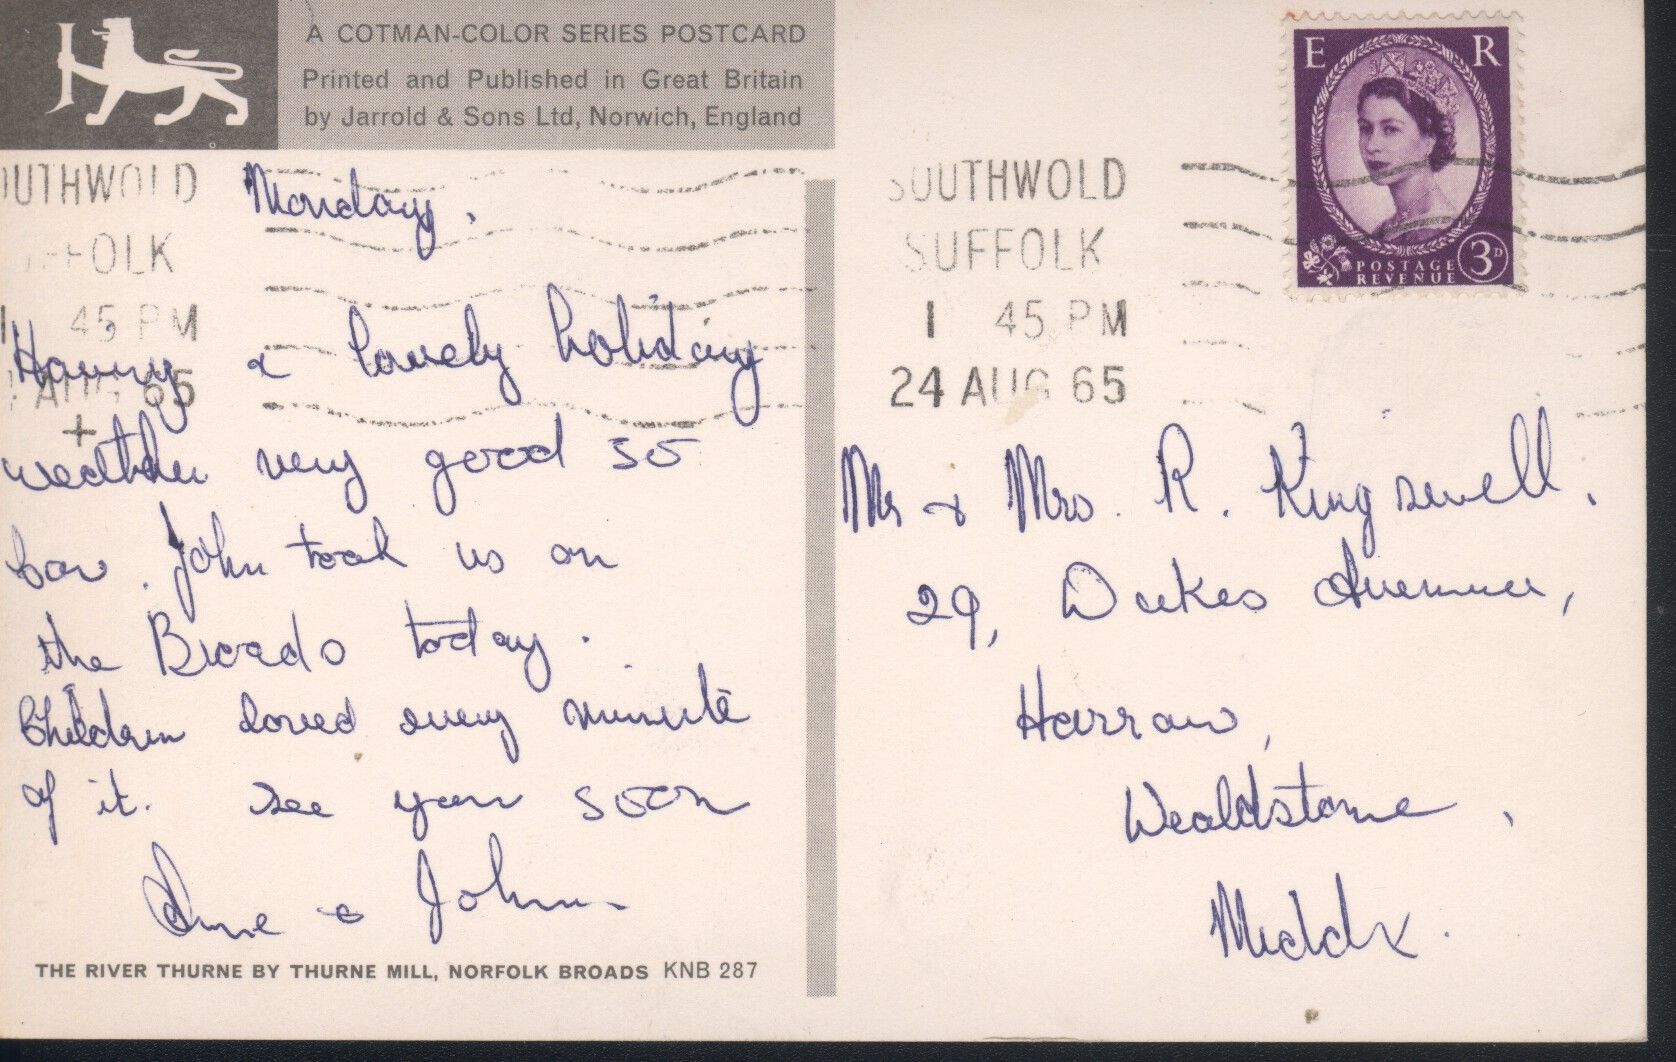 A COTMAN-COLOR SERIES POSTCARD
Printed and Published in Great Britain
by Jarrold & Sons Ltd, Norwich, England
OUTHWOLD
FFOLK
1 45 PM
AUG 65
+
Monday.
Having a lovely holiday
weather very good so
far. John took us on
the Broads today.
Children loved every minute
of it. See you soon
Anne & John
THE RIVER THURNE BY THURNE MILL, NORFOLK BROADS KNB 287
E R
POSTAGE
REVENUE
3D
SOUTHWOLD
SUFFOLK
1 45 PM
24 AUG 65
Mr & Mrs. R. Kingswell,
29, Dukes Avenue,
Harrow,
Wealdstone,
Middx.